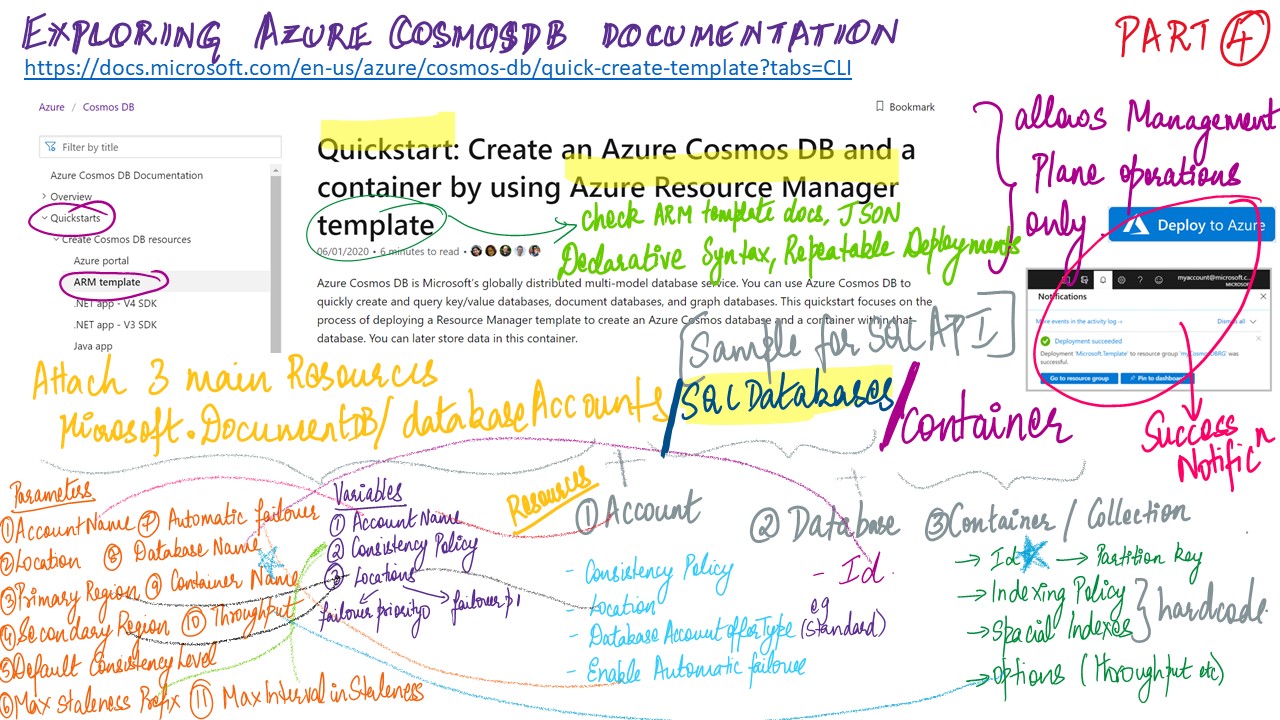 EXPLORING AZURE COSMOSDB DOCUMENTATION
PART 4
https://docs.microsoft.com/en-us/azure/cosmos-db/quick-create-template?tabs=CLI
Azure / Cosmos DB
Bookmark
Filter by title
Azure Cosmos DB Documentation
Overview
Quickstarts
Create Cosmos DB resources
Azure portal
ARM template
.NET app - V4 SDK
.NET app - V3 SDK
Java app
Quickstart: Create an Azure Cosmos DB and a
container by using Azure Resource Manager
template
06/01/2020 • 6 minutes to read •
check ARM template docs, JSON
Declarative Syntax, Repeatable Deployments
Azure Cosmos DB is Microsoft's globally distributed multi-model database service. You can use Azure Cosmos DB to
quickly create and query key/value databases, document databases, and graph databases. This quickstart focuses on the
process of deploying a Resource Manager template to create an Azure Cosmos database and a container within that
database. You can later store data in this container.
allows Management
Plane operations
only
Deploy to Azure
myaccount@microsoft.c...
MICROSOFT
Notifications
More events in the activity log →
Dismiss all
Deployment succeeded
Deployment 'Microsoft.Template' to resource group 'myCosmosDBRG' was
successful.
Go to resource group
Pin to dashboard
Success
Notific n
[Sample for SQL API]
Attach 3 main Resources
Microsoft.DocumentDB/databaseAccounts/SQLDatabases/Container
Parameters
① AccountName ⑦ Automatic failover
② Location ⑧ Database Name
③ Primary Region ⑨ Container Name
④ Secondary Region ⑩ Throughput
⑤ Default Consistency Level
⑥ Max Staleness Prefix ⑪ Max Interval in Staleness
Variables
① Account Name
② Consistency Policy
③ Locations
failover priority 0
failover p1
Resources
① Account
- Consistency Policy
- Location
- Database Account offerType
- Enable Automatic failover
+
② Database
- Id
eg
(Standard)
+
③ Container / Collection
→ Id → Partition key
→ Indexing Policy
→ Spacial Indexes
hardcode
→ options (throughput etc)